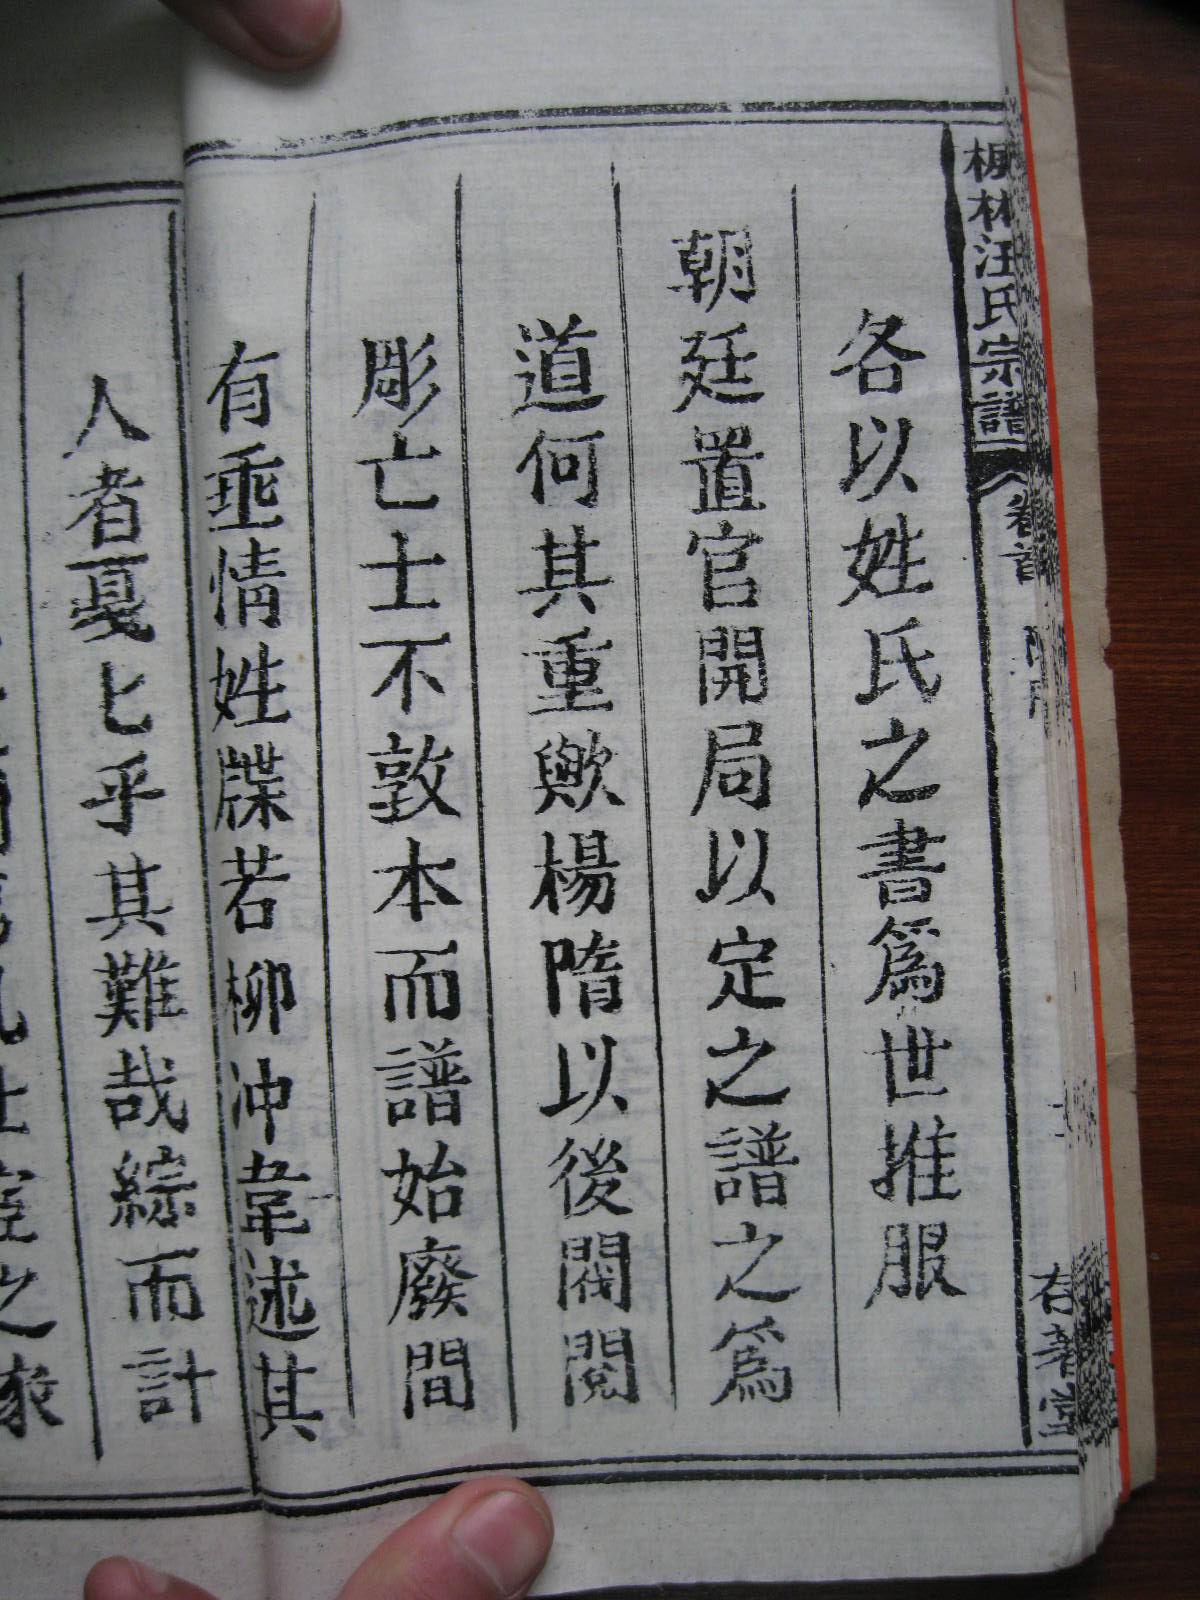 楓林汪氏宗譜
卷首
各以姓氏之書爲世推服
朝廷置官開局以定之譜之爲
道何其重歟楊隋以後閥閱
彫亡士不敦本而譜始廢間
有乖情姓牒若柳沖韋述其
人者戞匕乎其難哉綜而計
之家